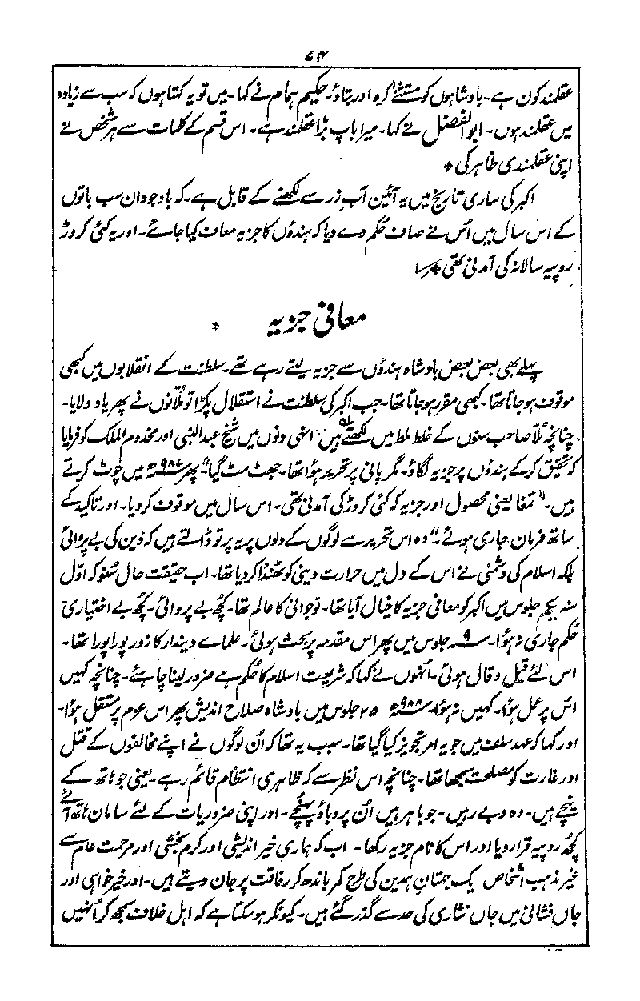 ۷۴
عقلمند کون ہے۔ بادشاہوں کو مستثنےٰ کرو اور بتاؤ۔ حکیم ہمام نے کہا۔ میں تو یہ کہتا ہوں کہ سب سے زیادہ
میں عقلمند ہوں۔ ابوالفضل نے کہا۔ میرا باپ بڑا عقلمند ہے۔ اس قسم کے کلمات سے ہر شخص نے
اپنی عقلمندی ظاہر کی *
اکبر کی ساری تاریخ میں یہ آئین آب زر سے لکھنے کے قابل ہے۔ کہ باوجود ان سب باتوں
کے اس سال میں اُس نے صاف حکم دے دیا کہ ہندوں کا جزیہ معاف کیا جائے۔ اور یہ کئی کروڑ
روپیہ سالانہ کی آمدنی تھی *
معافی جزیہ *
پہلے بھی بعض بعض بادشاہ ہندوں سے جزیہ لیتے رہے تھے۔ سلطنت کے انقلابوں میں کبھی
موقوف ہو جاتا تھا۔ کبھی مقرر ہو جاتا تھا۔ جب اکبر کی سلطنت نے استقلال پکڑا تو مُلّانوں نے پھر یاد دلایا۔
چنانچہ مُلّا صاحب سنوں کے غلط ملط میں لکھتے ہیں۔ انہی دنوں میں شیخ عبدالنبی اور مخدوم الملک کو فرمایا
کہ تحقیق کر کے ہندوں پر جزیہ لگاؤ۔ مگر پانی پر تحریر ہوا تھا۔ جھٹ مٹ گیا" پھر ۹۸۷ھ میں چوٹ کرتے
ہیں۔ "تمغا یعنی محصول اور جزیہ کہ کئی کروڑ کی آمدنی تھی۔ اس سال میں موقوف کر دیا۔ اور تاکید کے
ساتھ فرمان جاری ہوئے۔" وہ اس تحریر سے لوگوں کے دلوں پر یہ پرتو ڈالتے ہیں کہ دین کی بے پروائی
بلکہ اسلام کی دشمنی نے اس کے دل میں حرارت دینی کو ٹھنڈا کر دیا تھا۔ اب حقیقت حال سُنو کہ اوّل
سنہ جلوس میں اکبر کو معافی جزیہ کا خیال آیا تھا۔ نوجوانی کا عالم تھا۔ کچھ بے پروائی۔ کچھ بے اختیاری
حکم جاری نہ ہوا۔ سنہ ۹ جلوس میں پھر اس مقدمہ پر بحث ہوئی۔ علمائے دیندار کا زور پورا پورا تھا۔
اس لئے قیل و قال ہوئی۔ اُنہوں نے کہا کہ شریعت اسلام کا حکم ہے ضرور لینا چاہئے۔ چنانچہ کہیں
اُس پر عمل ہوا۔ کہیں نہ ہوا۔ ۹۸۸ھ ۲۵ جلوس میں بادشاہ صلاح اندیش پھر اس عزم پر مستقل ہوا۔
اور کہا کہ عہد سلف میں جو یہ امر تجویز کیا گیا تھا۔ سبب یہ تھا کہ اُن لوگوں نے اپنے مخالفوں کے قتل
اور غارت کو مصلحت سمجھا تھا۔ چنانچہ اس نظر سے کہ ظاہری انتظام قائم رہے۔ یعنی جو ہاتھ کے
نیچے ہیں۔ وہ دبے رہیں۔ جو باہر ہیں اُن پر دباؤ پہنچے۔ اور اپنی ضروریات کے لئے سامان ہاتھ آئے
کچھ روپیہ قرار دیا اور اس کا نام جزیہ رکھا۔ اب کہ ہماری خیر اندیشی اور کرم بخشی اور مرحمت عام سے
غیر مذہب اشخاص یک جہتان ہمدین کی طرح کمر باندھ کر رفاقت پر جان دیتے ہیں۔ اور خیر خواہی اور
جاں فشانی میں جاں نثاری کی حد سے گذر گئے ہیں۔ کیونکر ہو سکتا ہے کہ اہل خلاف سمجھ کر اُنہیں